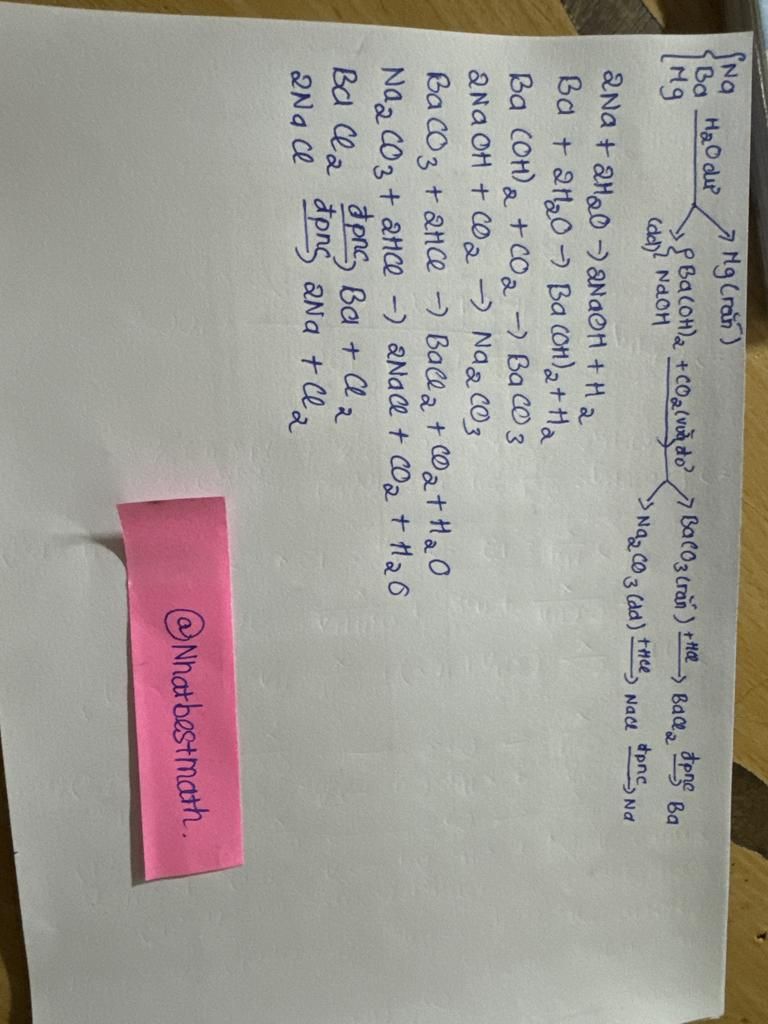 Na
Ba
Mg
H₂O dư
→ Mg (rắn)
→ (dd) { Ba(OH)₂
NaOH
+ CO₂ (vừa đủ)
→ BaCO₃ (rắn) +HCl → BaCl₂ đpnc → Ba
→ Na₂CO₃ (dd) +HCl → NaCl đpnc → Na
2Na + 2H₂O → 2NaOH + H₂
Ba + 2H₂O → Ba(OH)₂ + H₂
Ba(OH)₂ + CO₂ → BaCO₃
2NaOH + CO₂ → Na₂CO₃
BaCO₃ + 2HCl → BaCl₂ + CO₂ + H₂O
Na₂CO₃ + 2HCl → 2NaCl + CO₂ + H₂O
BaCl₂ đpnc → Ba + Cl₂
2NaCl đpnc → 2Na + Cl₂
@Nhatbestmath.